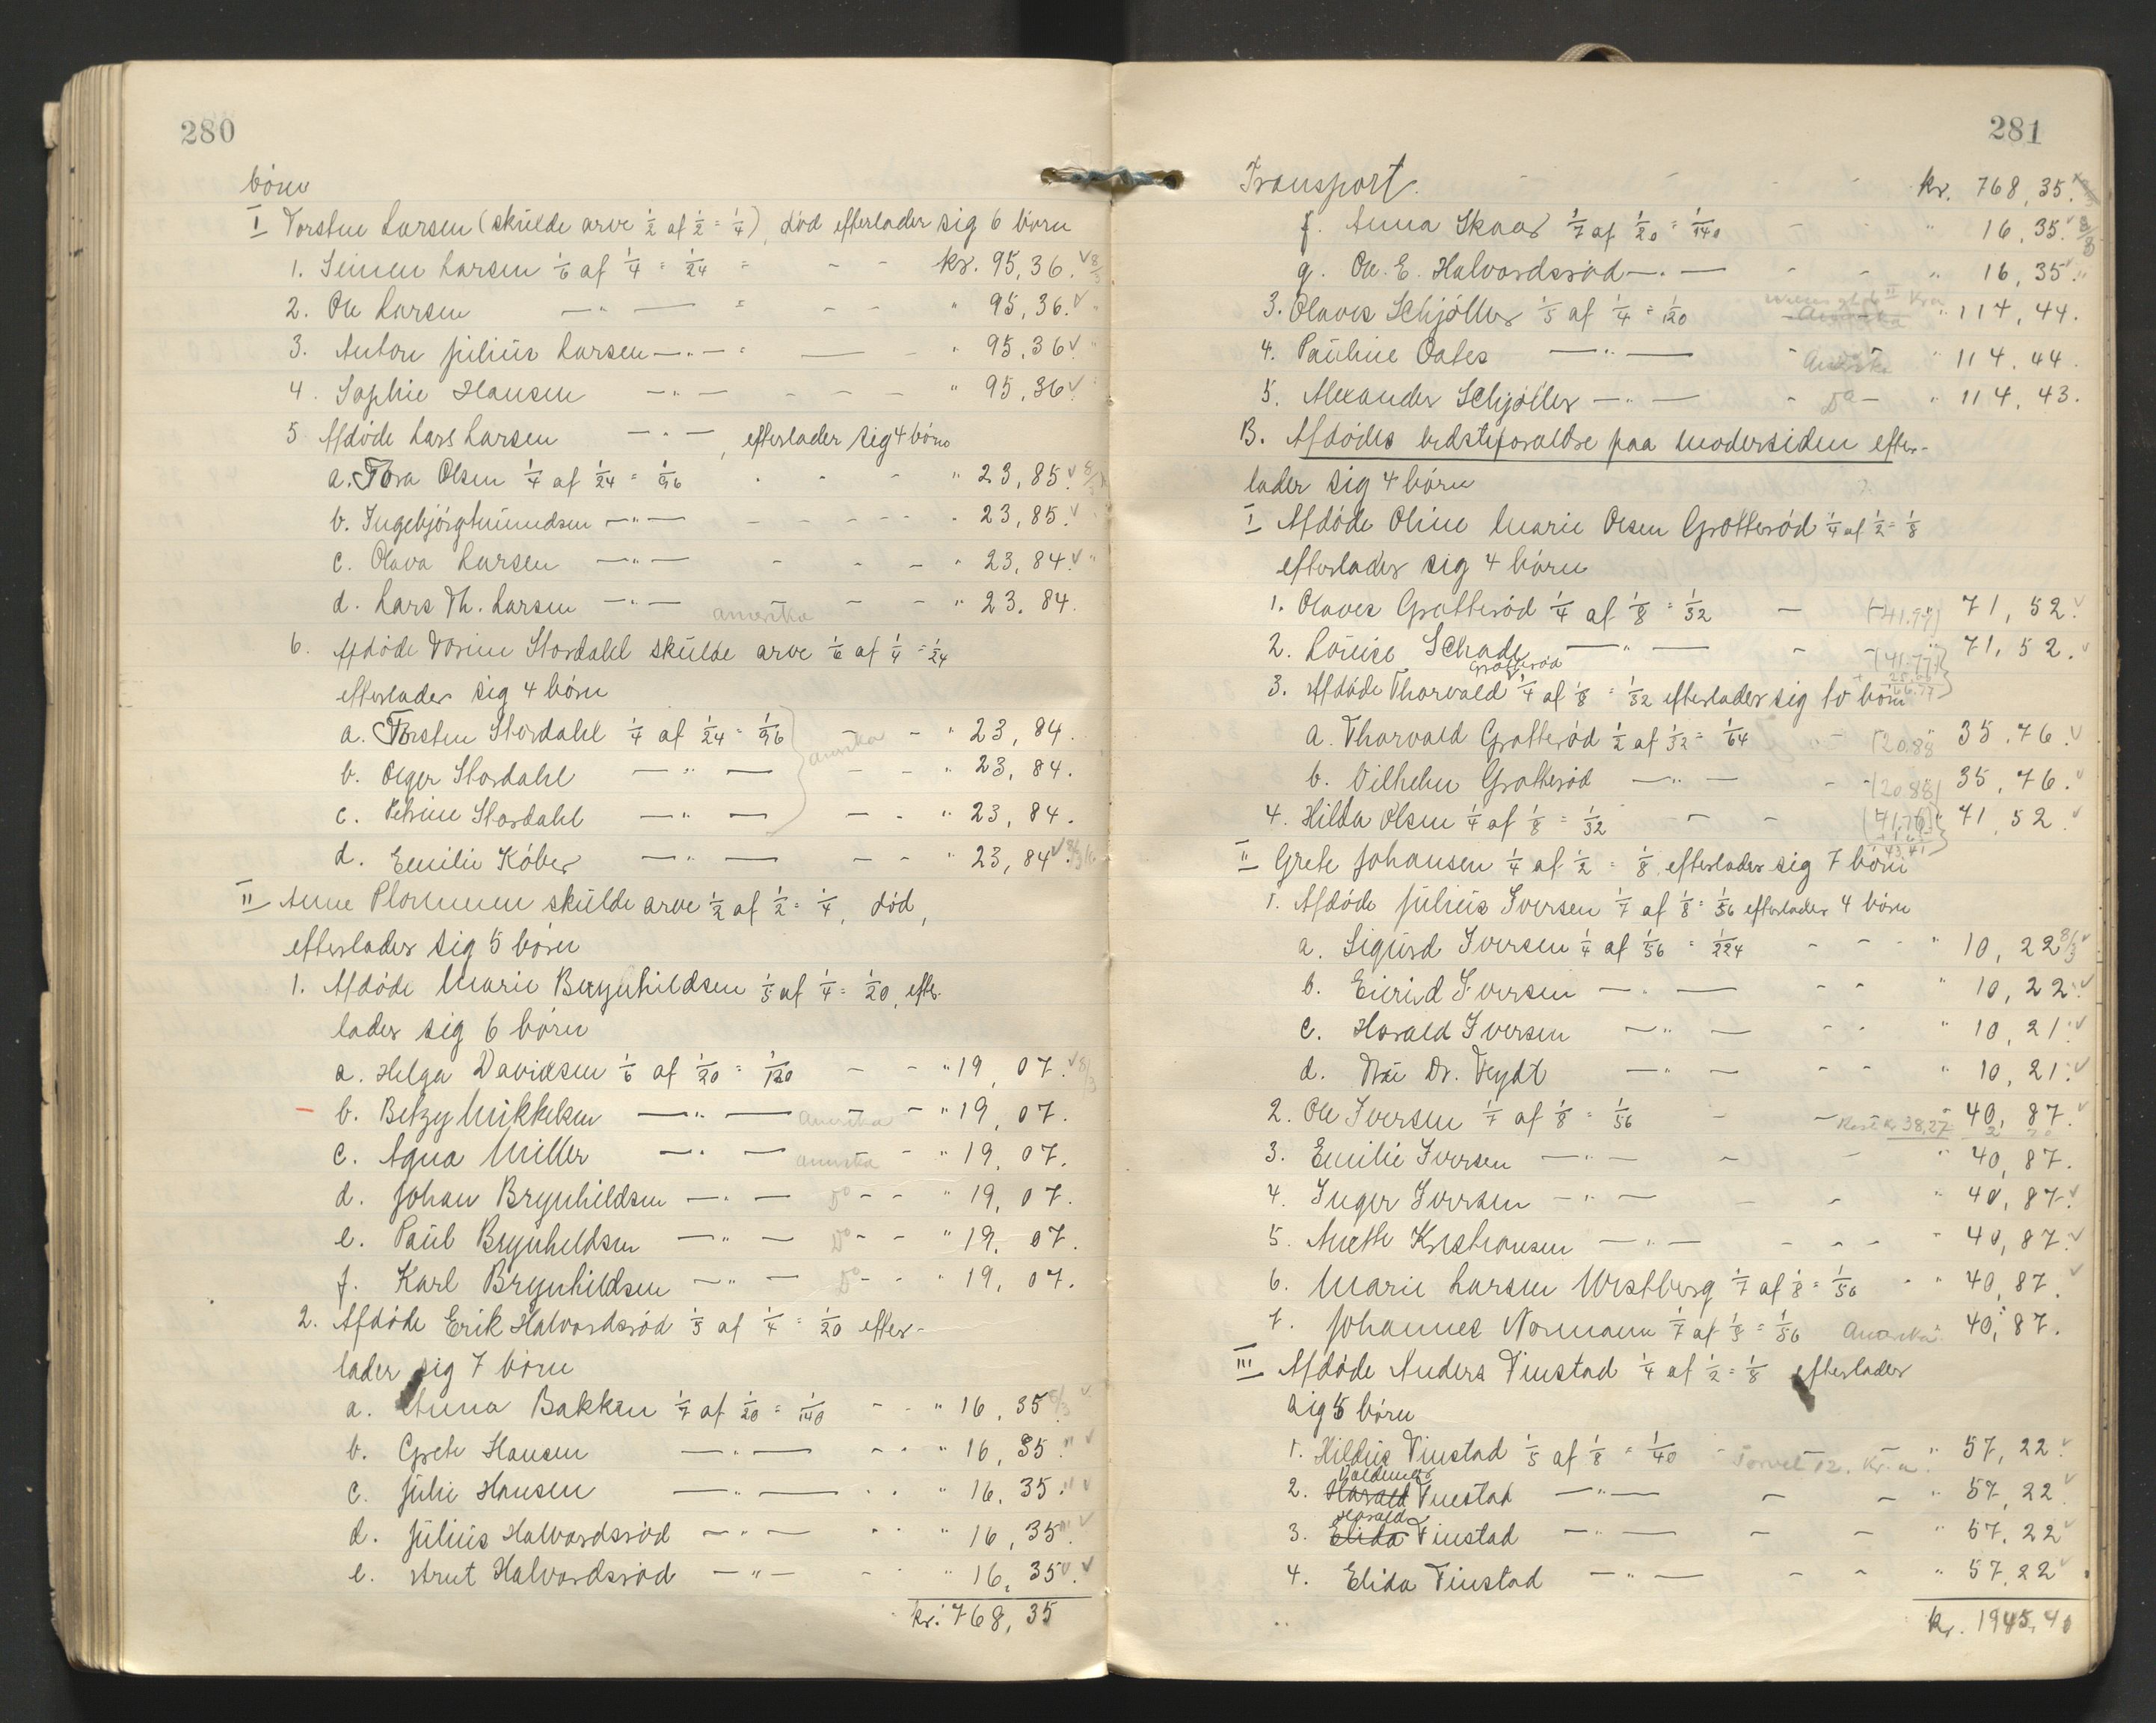 280
börn
I Torsten Larsen (skulde arve 1/2 af 1/2 = 1/4), död efterlader sig 6 börn
1. Simen Larsen 1/6 af 1/4 = 1/24 = - - kr. 95,36.
2. Ole Larsen —"— = - - " 95,36.
3. Anton Julius Larsen —"— = — - " 95,36.
4. Sophie Hansen —"— - - - " 95,36.
5 Afdöde Lars Larsen —"—, efterlader sig 4 börn
a. Tora Olsen 1/4 af 1/24 = 1/96 - - - " 23,85.
b. Ingebjörg —"— - - - - " 23,85.
c. Olava Larsen —"— - - - " 23,84.
d. Lars Th. Larsen —"— amerika - - - " 23,84.
6. Afdöde Torine Stordahl skulde arve 1/6 af 1/4 = 1/24
efterlader sig 4 börn
a. Torsten Stordahl 1/4 af 1/24 = 1/96 - - " 23,84.
b. Olger Stordahl —"— amerika - - " 23,84.
c. Petrine Stordahl —"— - - " 23,84.
d. Emilie Köber —"— - - " 23,84.
II Anne Plommen skulde arve 1/2 af 1/2 = 1/4, död,
efterlader sig 5 börn
1. Afdöde Marie Brynhildsen 1/5 af 1/4 = 1/20, efter-
lader sig 6 börn
a. Helga Davidsen 1/6 af 1/20 = 1/120 - - " 19,07. 8/3
b. Betzy Mikkelsen —"— amerika - " 19,07.
c. Agna Miller —"— amerika - " 19,07.
d. Johan Brynhildsen —"— Do - - " 19,07.
e. Paul Brynhildsen —"— Do - - " 19,07.
f. Karl Brynhildsen —"— Do - - " 19,07.
2. Afdöde Erik Halvordsröd 1/5 af 1/4 = 1/20 efter-
lader sig 7 börn
a. Anna Bakken 1/7 af 1/20 = 1/140 - - " 16,35 8/3
b. Grete Hansen —"— - - " 16,35
c. Julie Hansen —"— - - " 16,35.
d. Julius Halvordsröd —"— - - " 16,35
e. Arnt Halvordsröd —"— - - " 16,35
kr. 768,35
281
Transport. - - - - kr. 768,35.
f. Anna Skaar 1/7 af 1/20 = 1/140 - - " 16,35. 8/8
g. Ole E. Halvordsröd —"— - - " 16,35.
3. Olaves Schjöller 1/5 af 1/4 = 1/20 Amerika " 114,44.
4. Pauline Oates —"— Amerika " 114,44.
5. Alexander Schjöller —"— - Do - " 114,43.
B. Afdödes bedsteforældre paa modersiden efter-
lader sig 4 börn
I Afdöde Oline Marie Olsen Grotteröd 1/4 af 1/2 = 1/8
efterlader sig 4 börn
1. Olaves Grotteröd 1/4 af 1/8 = 1/32 - - 71,52.
2. Louise Schade —"— - - 71,52.
3. Afdöde Thorvald Grotteröd 1/4 af 1/8 = 1/32 efterlader sig to börn
a. Thorvald Grotteröd 1/2 af 1/32 = 1/64 - (20.88 35,76.
b. Vilhelm Grotteröd —"— - (20.88) 35,76.
4. Hilda Olsen 1/4 af 1/8 = 1/32 - - 71,52
II Grete Johansen 1/4 af 1/2 = 1/8, efterlader sig 7 börn
1. Afdöde Julius Iversen 1/7 af 1/8 = 1/56 efterlader 4 börn
a. Sigurd Iversen 1/4 af 1/56 = 1/224 - - - " 10,22 8/3
b. Eivind Iversen —"— - - " 10,22.
c. Harald Iversen —"— - - " 10,21.
d. Fru Dr. Feydt —"— - - " 10,21.
2. Ole Iversen 1/7 af 1/8 = 1/56 - - Rest kr 38,27 40,87.
3. Emilie Iversen —"— - - " 40,87.
4. Inger Iversen —"— - - " 40,87.
5. Anette Kristiansen —"— - - - " 40,87.
6. Marie Larsen Westberg 1/7 af 1/8 = 1/56 - " 40,87.
7. Johannes Normann 1/7 af 1/8 = 1/56 Amerika " 40,87.
III Afdöde Anders Tinstad 1/4 af 1/2 = 1/8 efterlader
sig 5 börn
1. Hildus Tinstad 1/5 af 1/8 = 1/40 - Torvet 12. Kr.a " 57,22.
2. Harald Valdemar Tinstad —"— - - " 57,22
3. Elida Harald Tinstad —"— - - " 57,22
4. Elida Tinstad —"— - - " 57,22
kr. 1945,40